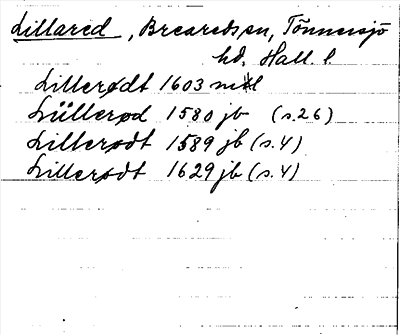 Lillared, Breareds sn, Tönnersjö
hd. Hall. l
Lillerødt 1603 mtl
Lüllerød 1580 jb (s. 26)
Lillerødt 1589 jb (s. 4)
Lillerødt 1629 jb (s. 4)